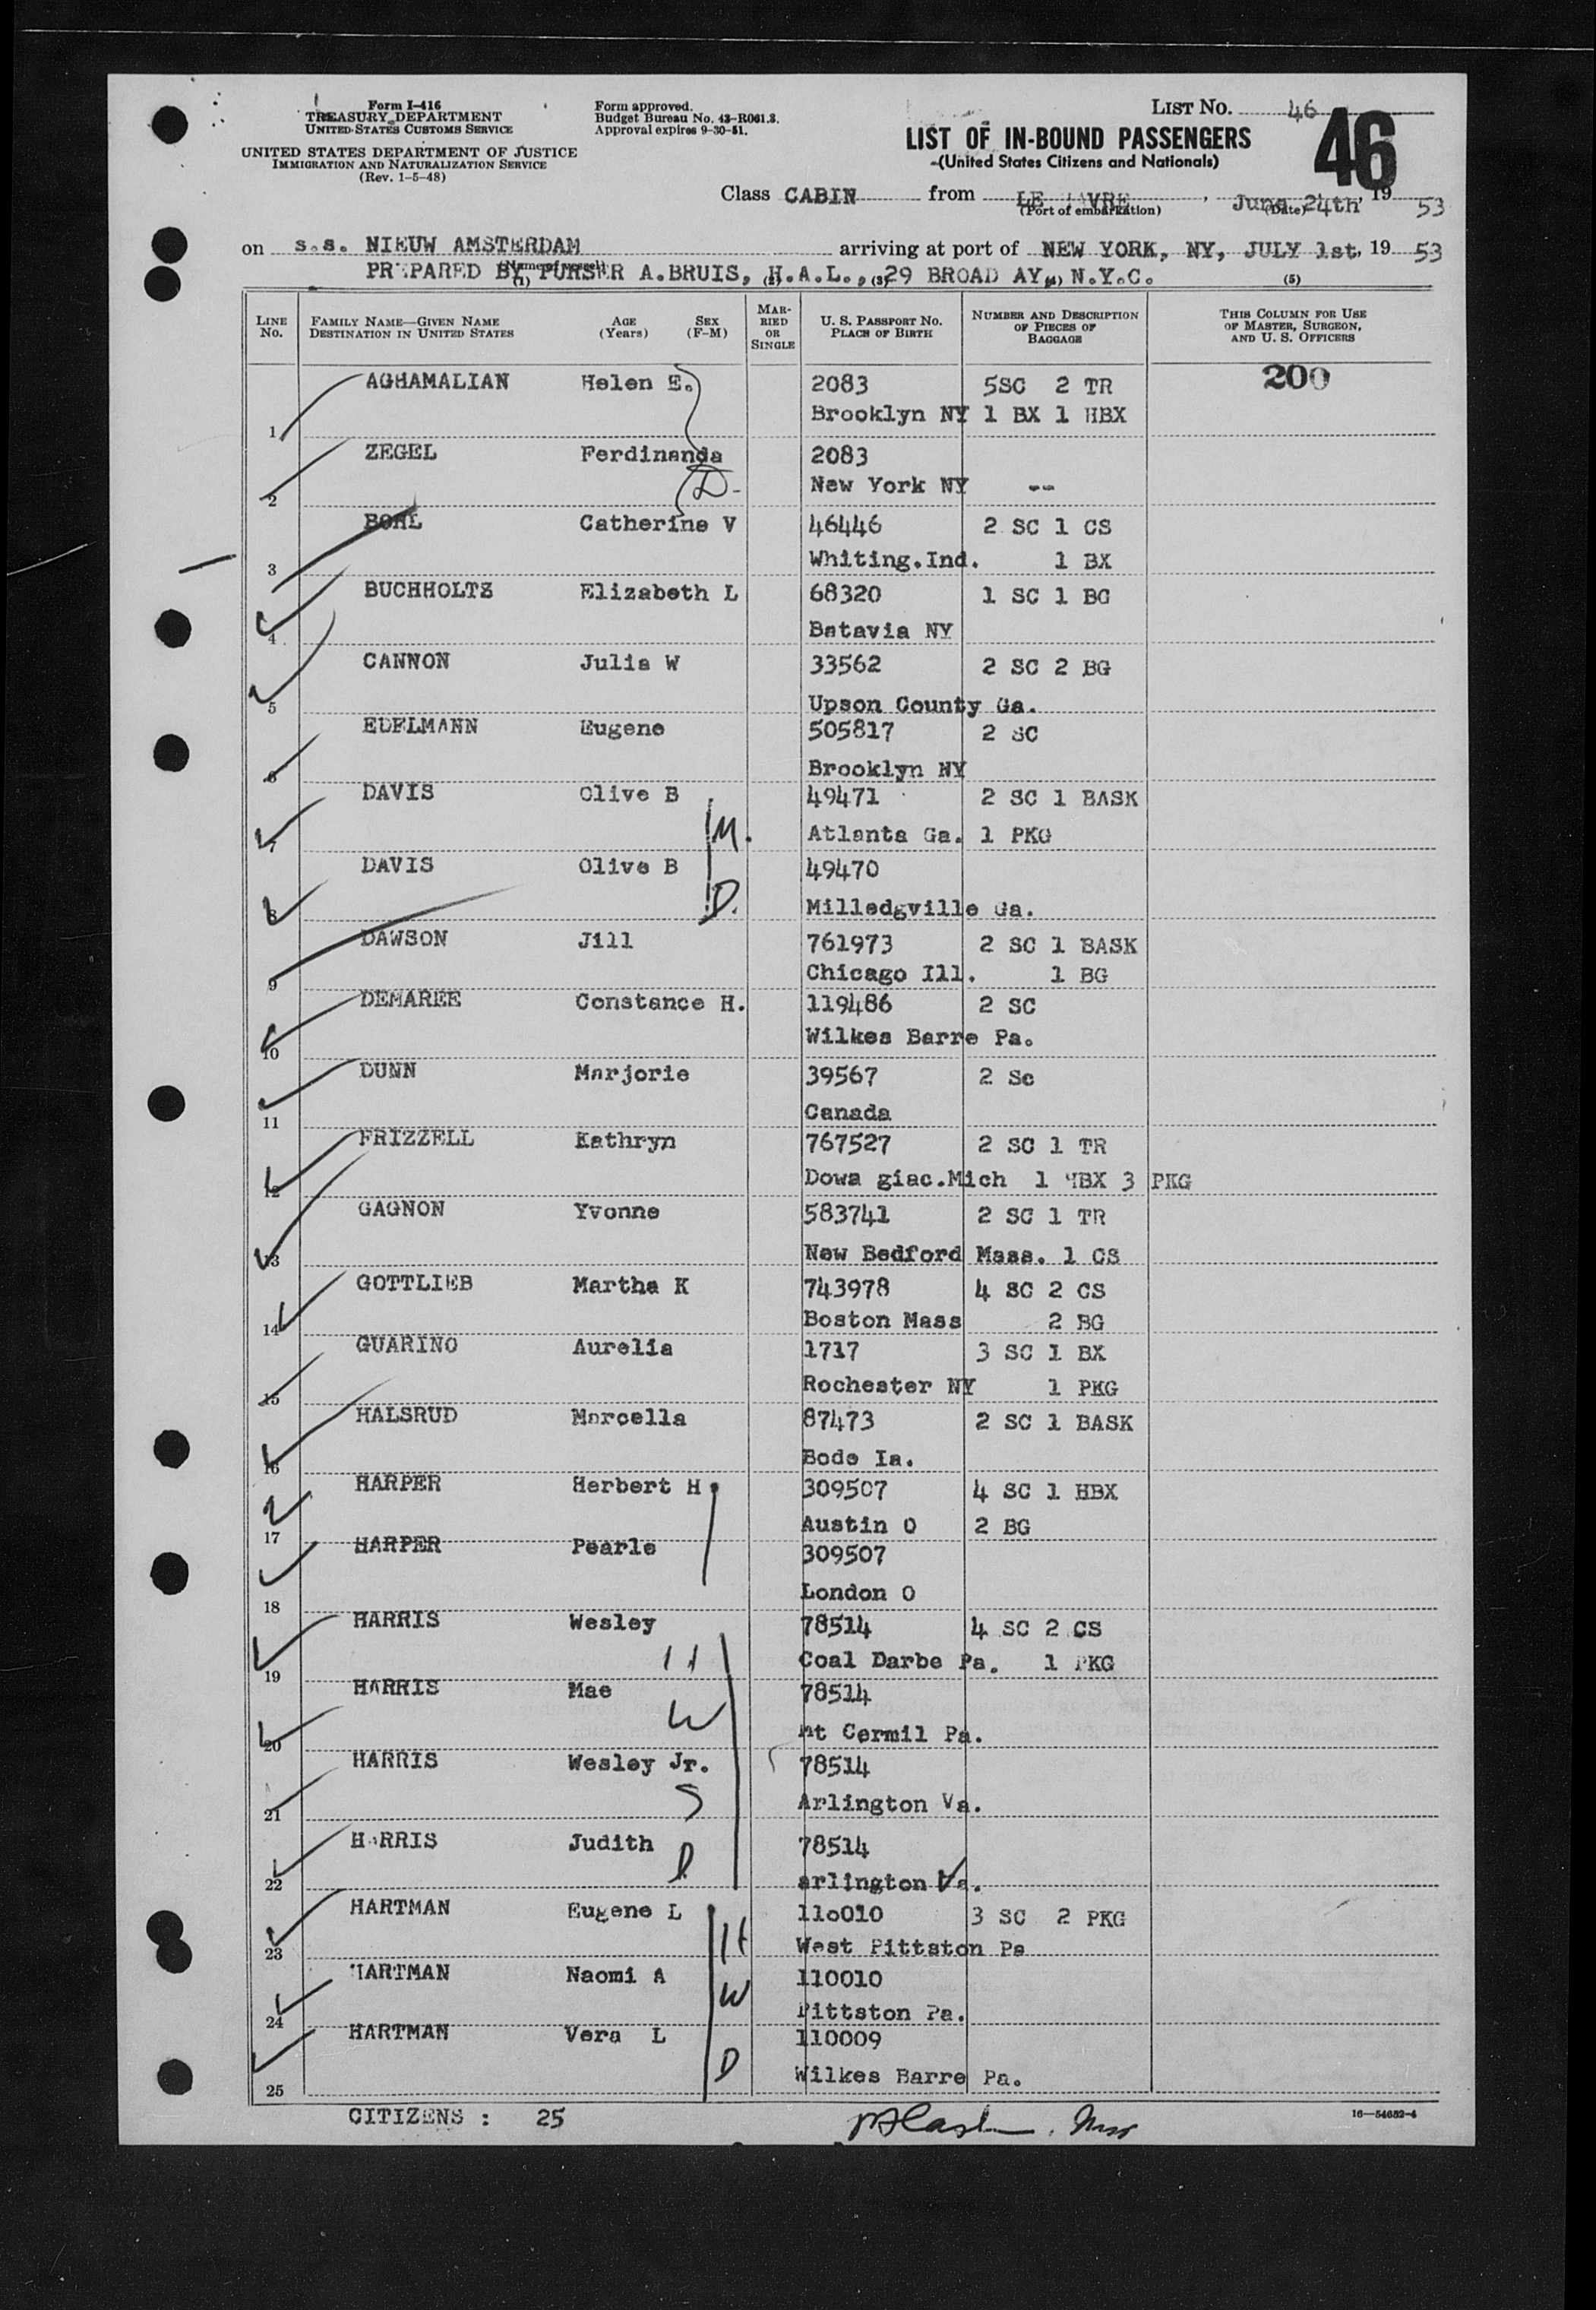 Form I-416
TREASURY DEPARTMENT
UNITED STATES CUSTOMS SERVICE
UNITED STATES DEPARTMENT OF JUSTICE
IMMIGRATION AND NATURALIZATION SERVICE
(Rev. 1-5-48)
Form approved.
Budget Bureau No. 43-R061.3.
Approval expires 9-30-51.
LIST No. 46
46
LIST OF IN-BOUND PASSENGERS
(United States Citizens and Nationals)
Class CABIN from LE HAVRE, June 24th, 19 53
(Port of embarkation) (Date)
on s.s. NIEUW AMSTERDAM arriving at port of NEW YORK, NY, JULY 1st, 19 53
(Name of vessel)
PREPARED BY PURSER A.BRUIS, H.A.L., 29 BROAD AY, N.Y.C.
(1) (2) (3) (4) (5)
LINE No. FAMILY NAME—GIVEN NAME DESTINATION IN UNITED STATES AGE (Years) SEX (F-M) MARRIED OR SINGLE U. S. PASSPORT NO. PLACE OF BIRTH NUMBER AND DESCRIPTION OF PIECES OF BAGGAGE THIS COLUMN FOR USE OF MASTER, SURGEON, AND U. S. OFFICERS
AGHAMALIAN Helen E. 2083 5SC 2 TR 200
1 Brooklyn NY 1 BX 1 HBX
ZEGEL Ferdinanda 2083
2 D- New York NY --
BOHL Catherine V 46446 2 SC 1 CS
3 Whiting.Ind. 1 BX
BUCHHOLTZ Elizabeth L 68320 1 SC 1 BG
4 Batavia NY
CANNON Julia W 33562 2 SC 2 BG
5 Upson County Ga.
EDELMANN Eugene 505817 2 SC
6 Brooklyn NY
DAVIS Olive B 49471 2 SC 1 BASK
7 M. Atlanta Ga. 1 PKG
DAVIS Olive B 49470
8 D. Milledgville Ga.
DAWSON Jill 761973 2 SC 1 BASK
9 Chicago Ill. 1 BG
DEMAREE Constance H. 119486 2 SC
10 Wilkes Barre Pa.
DUNN Marjorie 39567 2 Sc
11 Canada
FRIZZELL Kathryn 767527 2 SC 1 TR
12 Dowa giac.Mich 1 HBX 3 PKG
GAGNON Yvonne 583741 2 SC 1 TR
13 New Bedford Mass. 1 CS
GOTTLIEB Martha K 743978 4 SC 2 CS
14 Boston Mass 2 BG
GUARINO Aurelia 1717 3 SC 1 BX
15 Rochester NY 1 PKG
HALSRUD Marcella 87473 2 SC 1 BASK
16 Bode Ia.
HARPER Herbert H 309507 4 SC 1 HBX
17 Austin O 2 BG
HARPER Pearle 309507
18 London O
HARRIS Wesley 78514 4 SC 2 CS
19 H Coal Darbe Pa. 1 PKG
HARRIS Mae 78514
20 W Mt Cermil Pa.
HARRIS Wesley Jr. 78514
21 S Arlington Va.
HARRIS Judith 78514
22 D arlington Va.
HARTMAN Eugene L 110010 3 SC 2 PKG
23 H West Pittston Pa
HARTMAN Naomi A 110010
24 W Pittston Pa.
HARTMAN Vera L 110009
25 D Wilkes Barre Pa.
CITIZENS : 25
16—54652-4